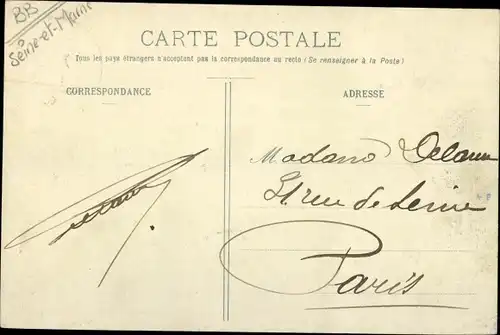 BB
Seine-et-Marne
CARTE POSTALE
Tous les pays étrangers n'acceptent pas la correspondance au recto (Se renseigner à la Poste)
CORRESPONDANCE
ADRESSE
Madame
rue de Seine
Paris